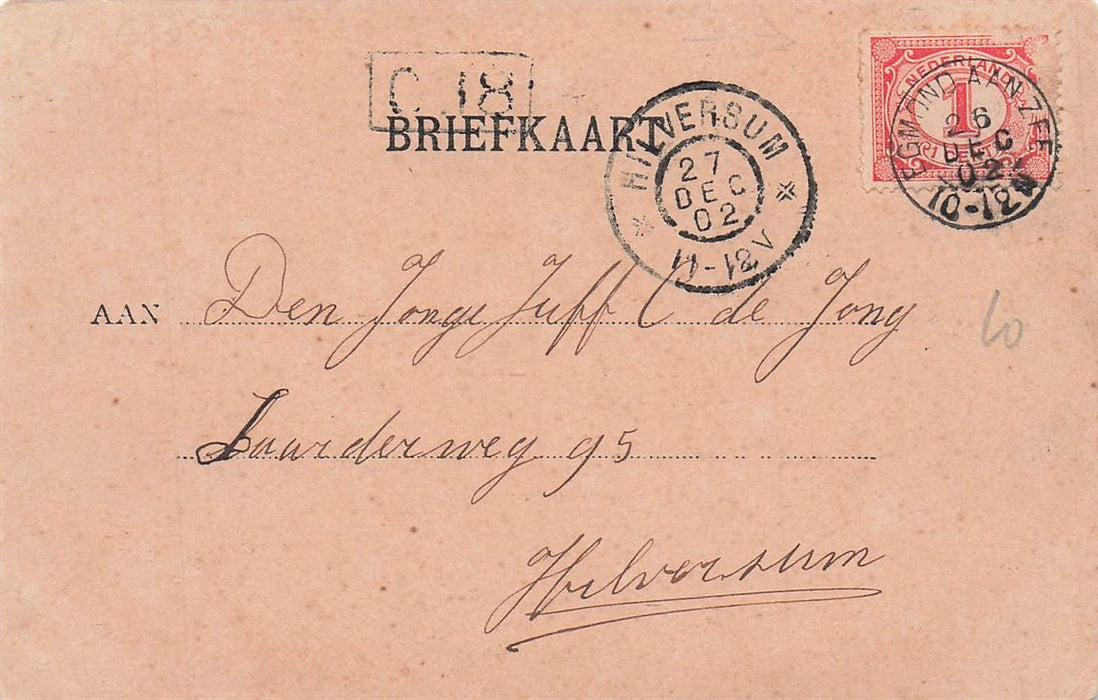 C 18
BRIEFKAART
HILVERSUM
27
DEC
02
11-12V
NEDERLAND
1
1 CENT
EGMOND AAN ZEE
26
DEC
02
10-12
AAN Den Jonge Juff C de Jong
Laarderweg 95
Hilversum
10